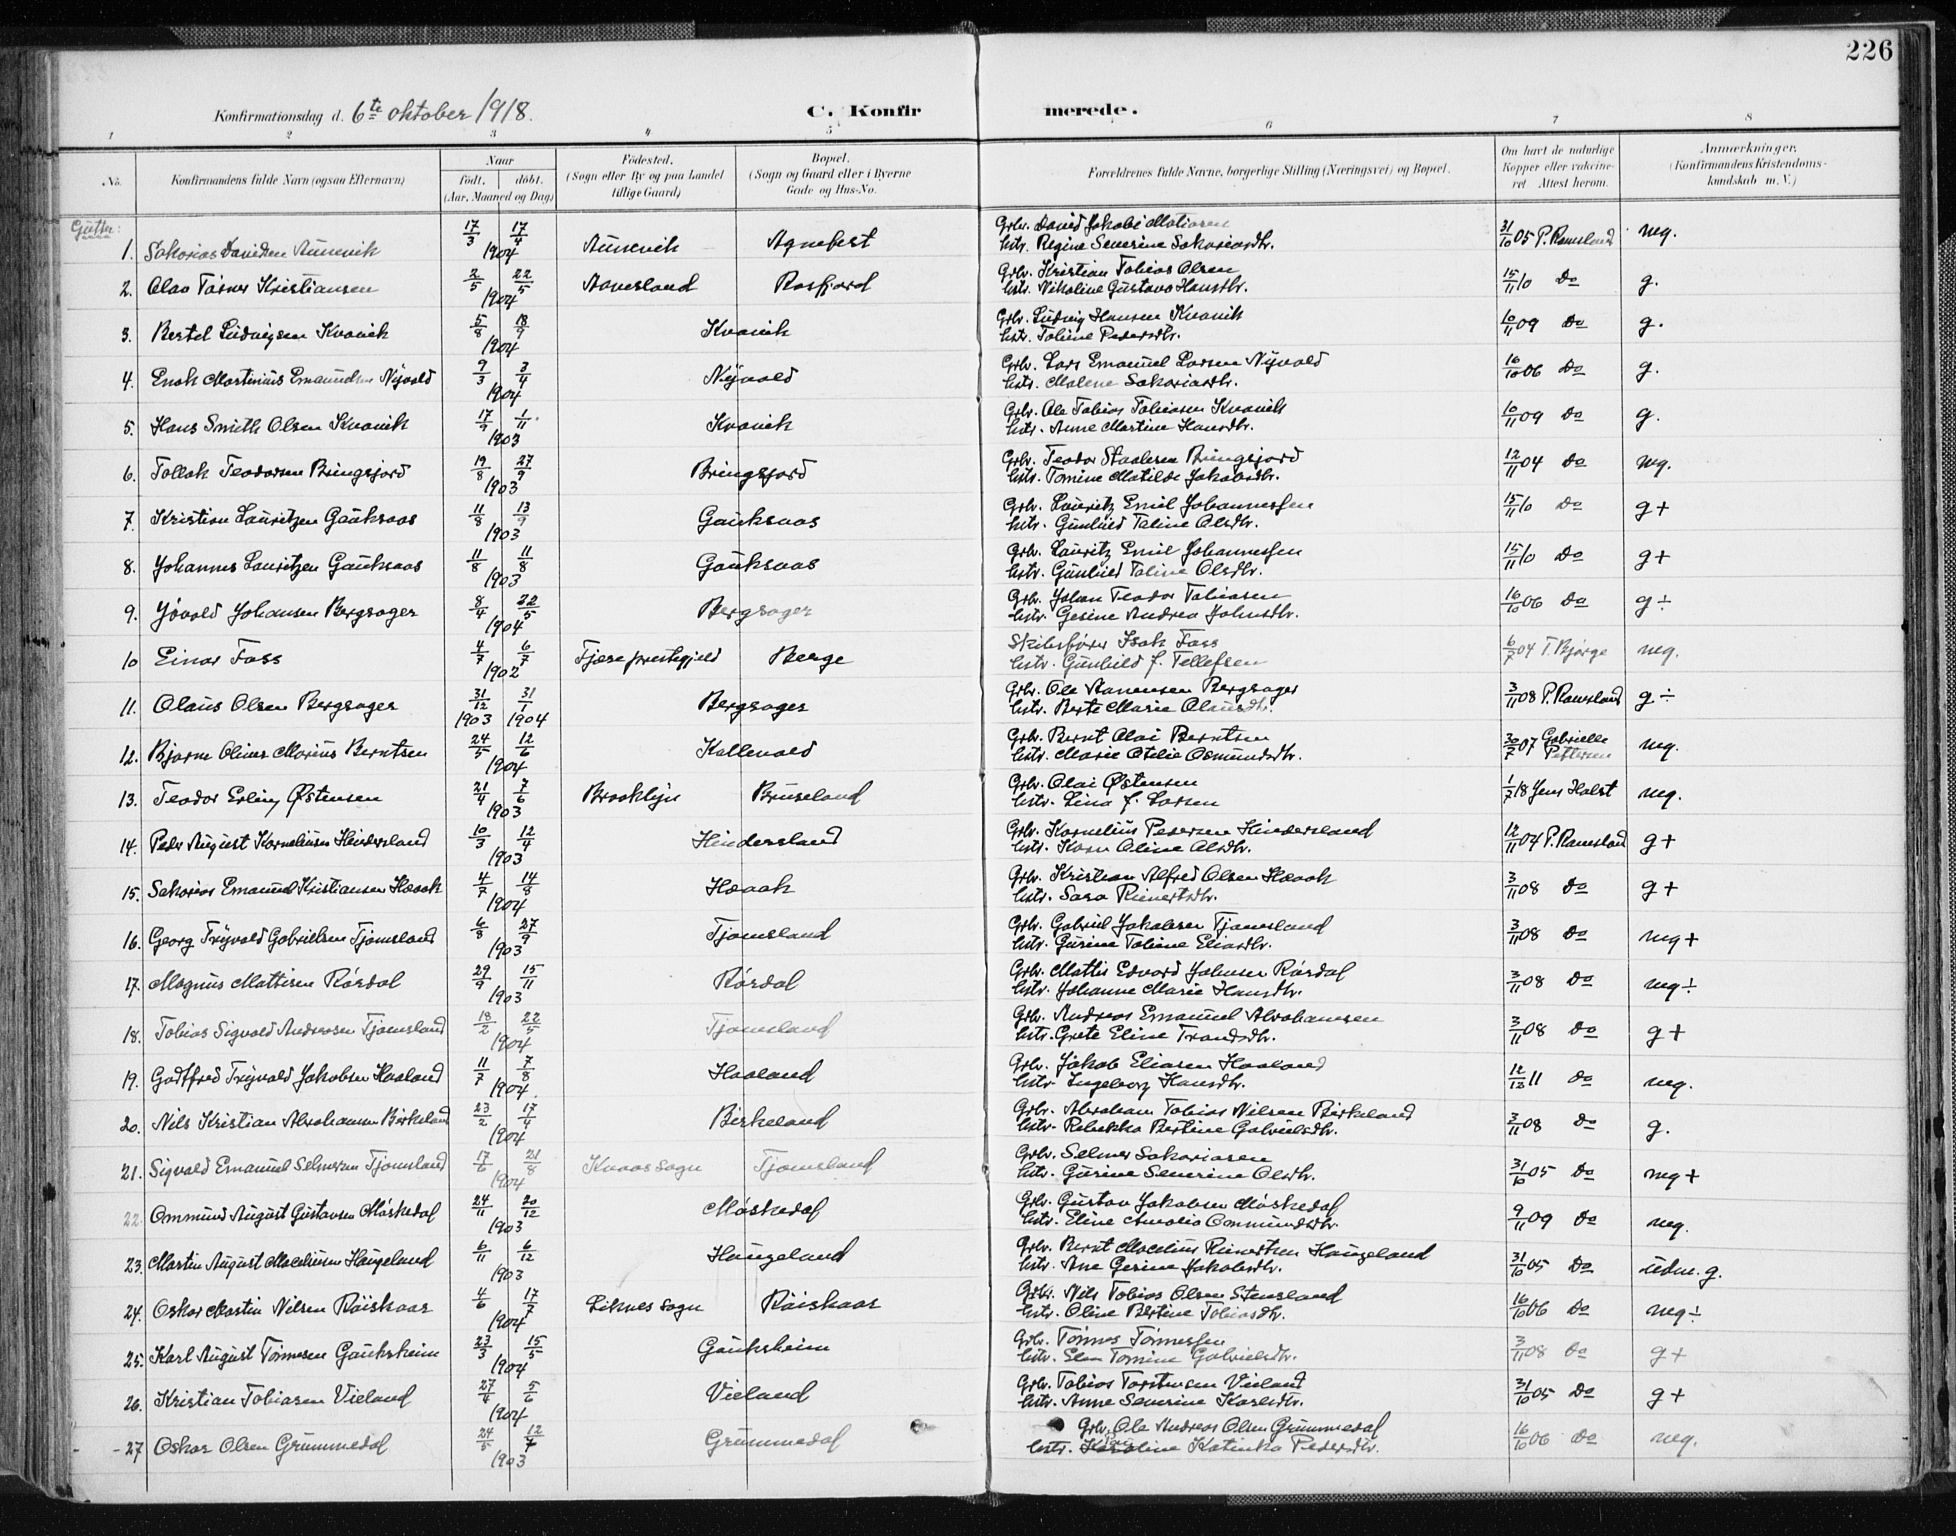 226
Konfirmationsdag d. 6te oktober 1918.
C. Konfirmerede.
1 2 3 4 5 6 7 8
No. Konfirmandens fulde Navn (ogsaa Efternavn) Naar født, døbt. (Aar, Maaned og Dag) Fødested. (Sogn eller By og paa Landet tillige Gaard) Bopæl. (Sogn og Gaard eller i Byerne Gade og Hus-No. Forældrenes fulde Navne, borgerlige Stilling (Næringsvei) og Bopæl. Om havt de naturlige Kopper eller vakcineret Attest herom. Anmærkninger. (Konfirmandens Kristendomskundskab m. V.)
Gutter:
1. Sakarias Davidsen Aunevik 17/3 17/4 1904 Aunevik Agnefest Grbr. David Jakobi Matiasen Hstr. Regine Severine Sakariasdtr. 31/10 05 P. Ramsland mg.
2. Olav Tarner Kristiansen 2/5 22/5 1904 Aanesland Rosfjord Grbr. Kristian Tobias Olsen Hstr. Nikoline Gustava Hansdtr. 15/11 10 Do g.
3. Bertel Ludvigsen Kvavik 5/8 18/9 1904 Kvavik Grbr. Ludvig Hansen Kvavik Hstr. Tobine Pedersdtr. 10/11 09 Do g.
4. Enok Martinius Emanuelsen Nyvold 9/3 3/4 1904 Nyvold Grbr. Lars Emanuel Larsen Nyvold Hstr. Malene Sakariasdtr. 16/10 06 Do g.
5. Hans Smith Olsen Kvavik 17/9 1/11 1903 Kvavik Grbr. Ole Tobias Tobiasen Kvavik Hstr. Anne Martine Hansdtr. 10/11 09 Do g.
6. Tollak Teodorsen Bringsjord 19/8 27/9 1903 Bringsjord Grbr. Teodor Staalesen Bringsjord Hstr. Tomine Matilde Jakobsdtr. 12/11 04 Do mg.
7. Kristian Lauritzen Gauksaas 11/8 13/9 1903 Gauksaas Grbr. Lauritz Emil Johannessen Hstr. Gunhild Taline Olsdtr. 15/11 10 Do g+
8. Johannes Lauritzen Gauksaas 11/8 11/8 1903 Gauksaas Grbr. Lauritz Emil Johannessen Hstr. Gunhild Taline Olsdtr. 15/11 10 Do g+
9. Jovald Johansen Bergsager 8/4 22/5 1904 Bergsager Grbr. Johan Teodor Tobiasen Hstr. Gesine Andrea Johnsdtr. 16/10 06 Do g÷
10 Einar Foss 4/7 6/7 1902 Fjære prestegjeld Berge Skibsfører Isak Foss Hstr. Gunhild f. Tellefsen 6/7 04 T. Bjørge mg.
11. Olaus Olsen Bergsager 31/12 1903 31/1 1904 Bergsager Grbr. Ole Aanensen Bergsager Hstr. Berte Marie Olausdtr. 3/11 08 P. Ramsland g÷
12. Bjarne Oliver Marius Berntsen 24/5 12/6 1904 Kallevold Grbr. Bernt Olai Berntsen Hstr. Marie Otelie Osmundsdtr. 30/7 07 Gabrielle Pettersen mg.
13. Teodor Erling Østensen 21/4 7/6 1903 Brooklyn Bruseland Grbr. Olai Østensen Hstr. Lina f. Larsen 1/7 18 Jens Holst mg.
14. Peder August Korneliusen Hindersland 10/3 12/4 1903 Hindersland Grbr. Kornelius Pedersen Hindersland Hstr. Karen Oline Olsdtr. 12/11 04 P. Ramsland g+
15. Sakarias Emanuel Kristiansen Haaak 4/7 14/8 1904 Haaak Grbr. Kristian Alfred Olsen Haaak Hstr. Sara Reinertsdtr. 3/11 08 Do g+
16. Georg Trygvald Gabrielsen Tjomsland 6/8 27/9 1903 Tjomsland Grbr. Gabriel Jakobsen Tjomsland Hstr. Gurine Tobine Eliasdtr. 3/11 08 Do mg+
17. Magnus Mattisen Rørdal 29/9 15/11 1903 Rørdal Grbr. Mattis Edvard Johnsen Rørdal Hstr. Johanne Marie Hansdtr. 3/11 08 Do mg÷
18. Tobias Sigvald Andreasen Tjomsland 18/2 22/5 1904 Tjomsland Grbr. Andreas Emanuel Abrahamsen Hstr. Grete Eline Trondsdtr. 3/11 08 Do g+
19. Godtfred Trygvald Jakobsen Haaland 11/7 7/8 1904. Haaland Grbr. Jakob Eliasen Haaland Hstr Ingeborg Hansdtr. 12/12 11 Do mg.
20. Nils Kristian Abrahamsen Birkeland 23/2 17/4 1904 Birkeland Grbr. Abraham Tobias Nilsen Birkeland Hstr. Rebekka Bertine Gabrielsdtr. 3/11 08 Do g.
21. Sigvald Emanuel Selmersen Tjomsland 17/6 21/8 1904 Kvaas sogn Tjomsland Grbr. Selmer Sakariasen Hstr. Gurine Severine Olsdtr. 31/10 05 Do mg+
22. Ommund August Gustavsen Møskedal 24/11 20/12 1903 Møskedal Grbr. Gustav Jakobsen Møskedal Hstr. Eline Amalia Ommundsdtr. 9/11 09 Do mg.
23. Martin August Maseliusen Haugeland 6/11 6/12 1903 Haugeland Grbr. Bernt Maselius Reinertsen Haugeland Hstr. Ane Gesine Jakobsdtr. 31/10 05 Do udm. g.
24. Oskar Martin Nilsen Røiskaar 4/6 17/7 1904 Liknes sogn Røiskaar Grbr. Nils Tobias Olsen Stensland Hstr. Oline Bertine Tobiasdtr. 16/10 06 Do mg÷
25. Karl August Tønnesen Gauksheim 23/3 15/5 1904 Gauksheim Grbr. Tønnes Tønnessen Hstr. Elen Tomine Gabrielsdtr. 3/11 08 Do g+
26. Kristian Tobiasen Vieland 27/4 5/6 1904 Vieland Grbr. Tobias Torstensen Vieland Hstr. Anne Severine Karlsdtr. 31/10 05 Do g+
27 Oskar Olsen Grummedal 24/5 12/7 1903 Grummedal Grbr. Ole Andreas Olsen Grummedal Hstr. Katinka Pedersdtr. 16/10 06 Do mg.